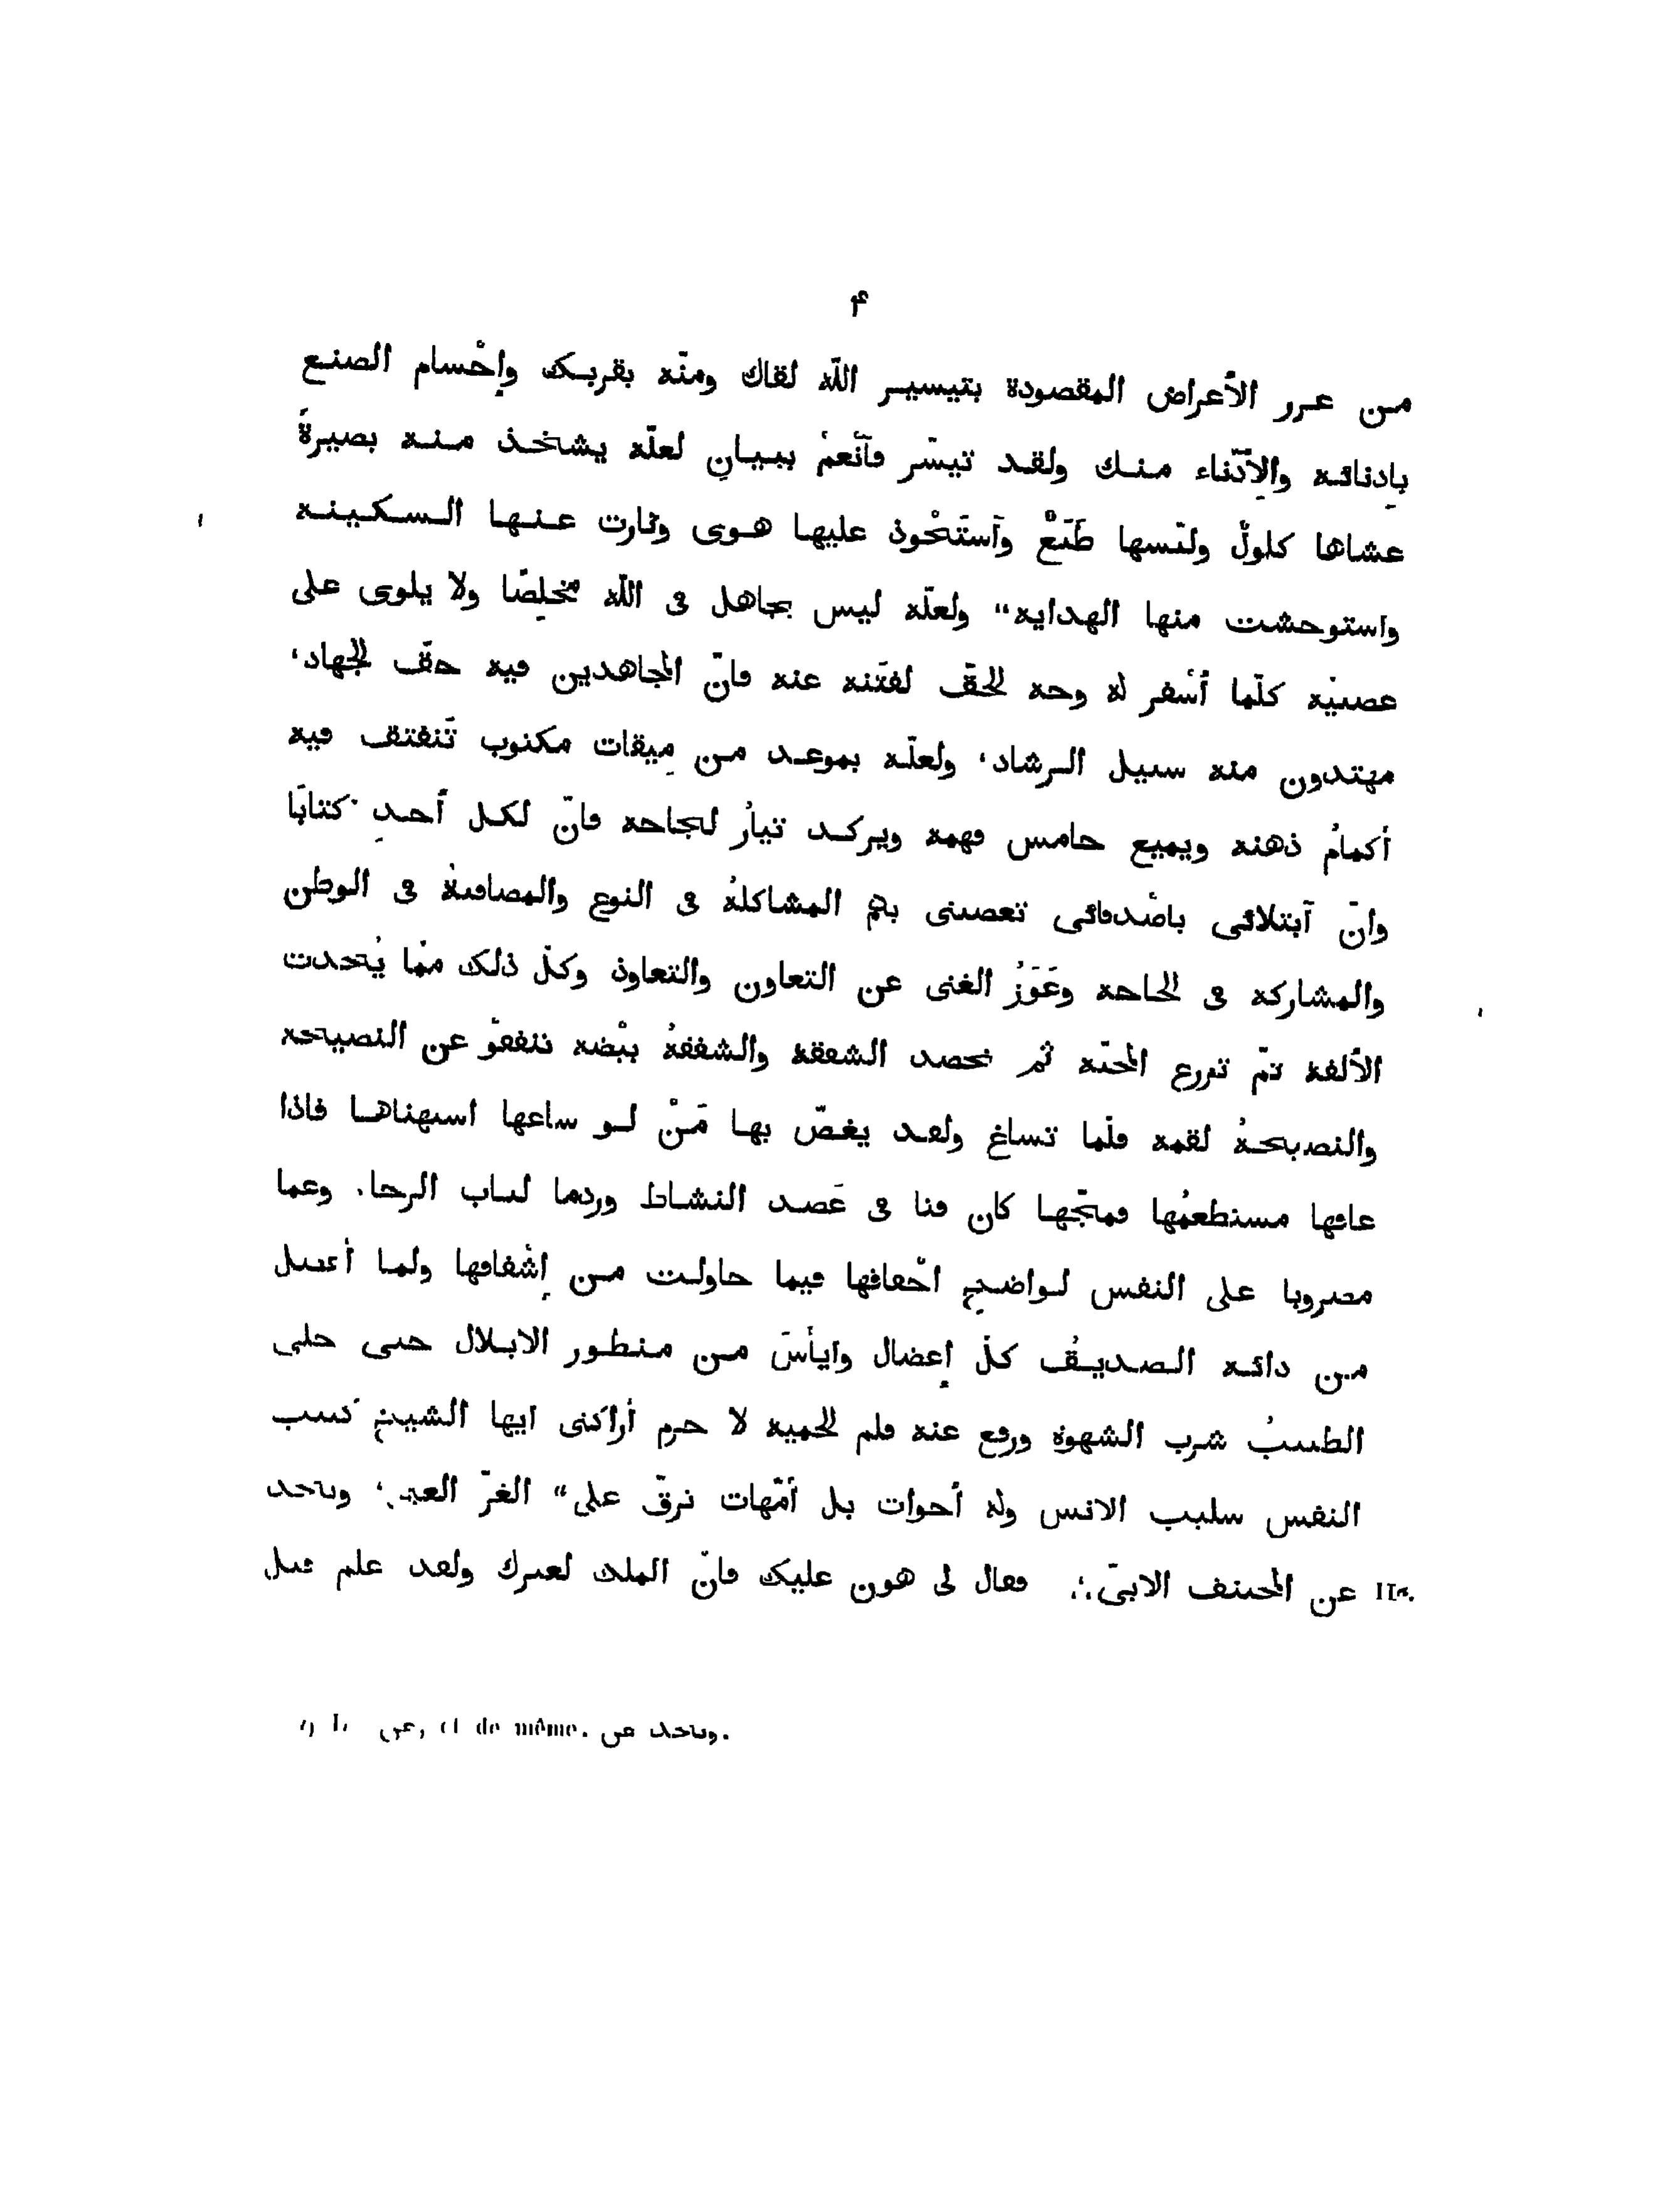 ۴
من عرر الأعراض المقصودة بتيسير اللّه لقاك ومنّه بقربك وإحْسام الصنع
بإدنائه والإِدّناء منك ولقد تيسّر فآنْعم ببيان لعلّه يشخذ منه بصيرةً
عشاها كلولٌ ولبّسها طَبَعٌ وآستَحْوذ عليها هوى وثارت عنها السكينه
واستوحشت منها الهدايه" ولعلّه ليس بجاهل فى اللّه مخلِصًا ولا يلوى على
عصبيّه كلّما أسْفر له وجه الحقّ لفتَنه عنه فانّ المجاهدين فيه حقّ الجهاد،
مهتدون منه سبيل الرشاد، ولعلّه بموعد من مِيقات مكتوب تَنفتق فيه
أكمامُ ذهنه ويميع جامس فهمه ويركد تيارُ لجاجه فانّ لكل أحدٍ كتابًا
وانّ آبتلائى باصْدقائى تعصبنى بهم المشاكلهُ فى النوع والمصاقبهُ فى الوطن
والمشاركه فى الحاجه وعَوَزُ الغنى عن التعاون والتعاوذ وكلّ ذلك ممّا يُحدث
الألفه ثمّ تزرع المحبّه ثم تحصد الشفقه والشفقهُ بيْضه تنفقوْ عن النصيحه
والنصيحهُ لقمه قلّما تساغ ولقد يغصّ بها مَنْ لو ساغها استهناها فاذا
عافها مستطعمُها فمجّها كان فتا فى عَضد النشاط وردما لباب الرجا، وعما
مضروبا على النفس لواضح احْقاقها فيما حاولت من إشْفاقها ولما أعضل
من دائه الصديقُ كلّ إعضال وايأسَ من منظور الابلال حتى خلى
الطبيبُ شرب الشهوة ورفع عنه قلم الحميه لا جرم أراكنى ايها الشيخ كئيب
النفس سليب الانس وله أخوات بل أمّهات نرقّ على" الغرّ الغبى، وتحد
IIr. عن المحنف الابىّ،، فقال لى هون عليك فانّ الملك لغيرك ولقد علم قبل
et de même. وتحد من.